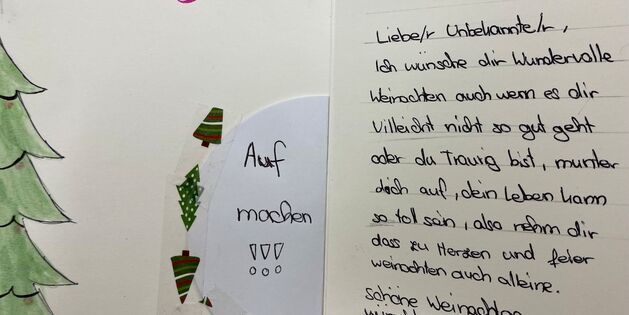 Auf
machen
!!!
Liebe/r Unbekannte/r,
Ich wünsche dir Wundervolle
Weinachten auch wenn es dir
Villeicht nicht so gut geht
oder du Traurig bist, munter
dich auf, dein Leben kann
so toll sein, also nehm dir
dass zu Herzen und feier
weinachten auch alleine.
schöne Weinachten